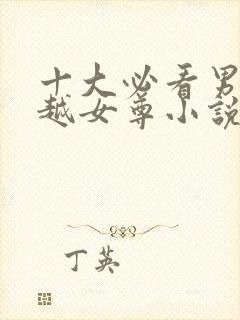 十大必看男
越女尊小說
丁英